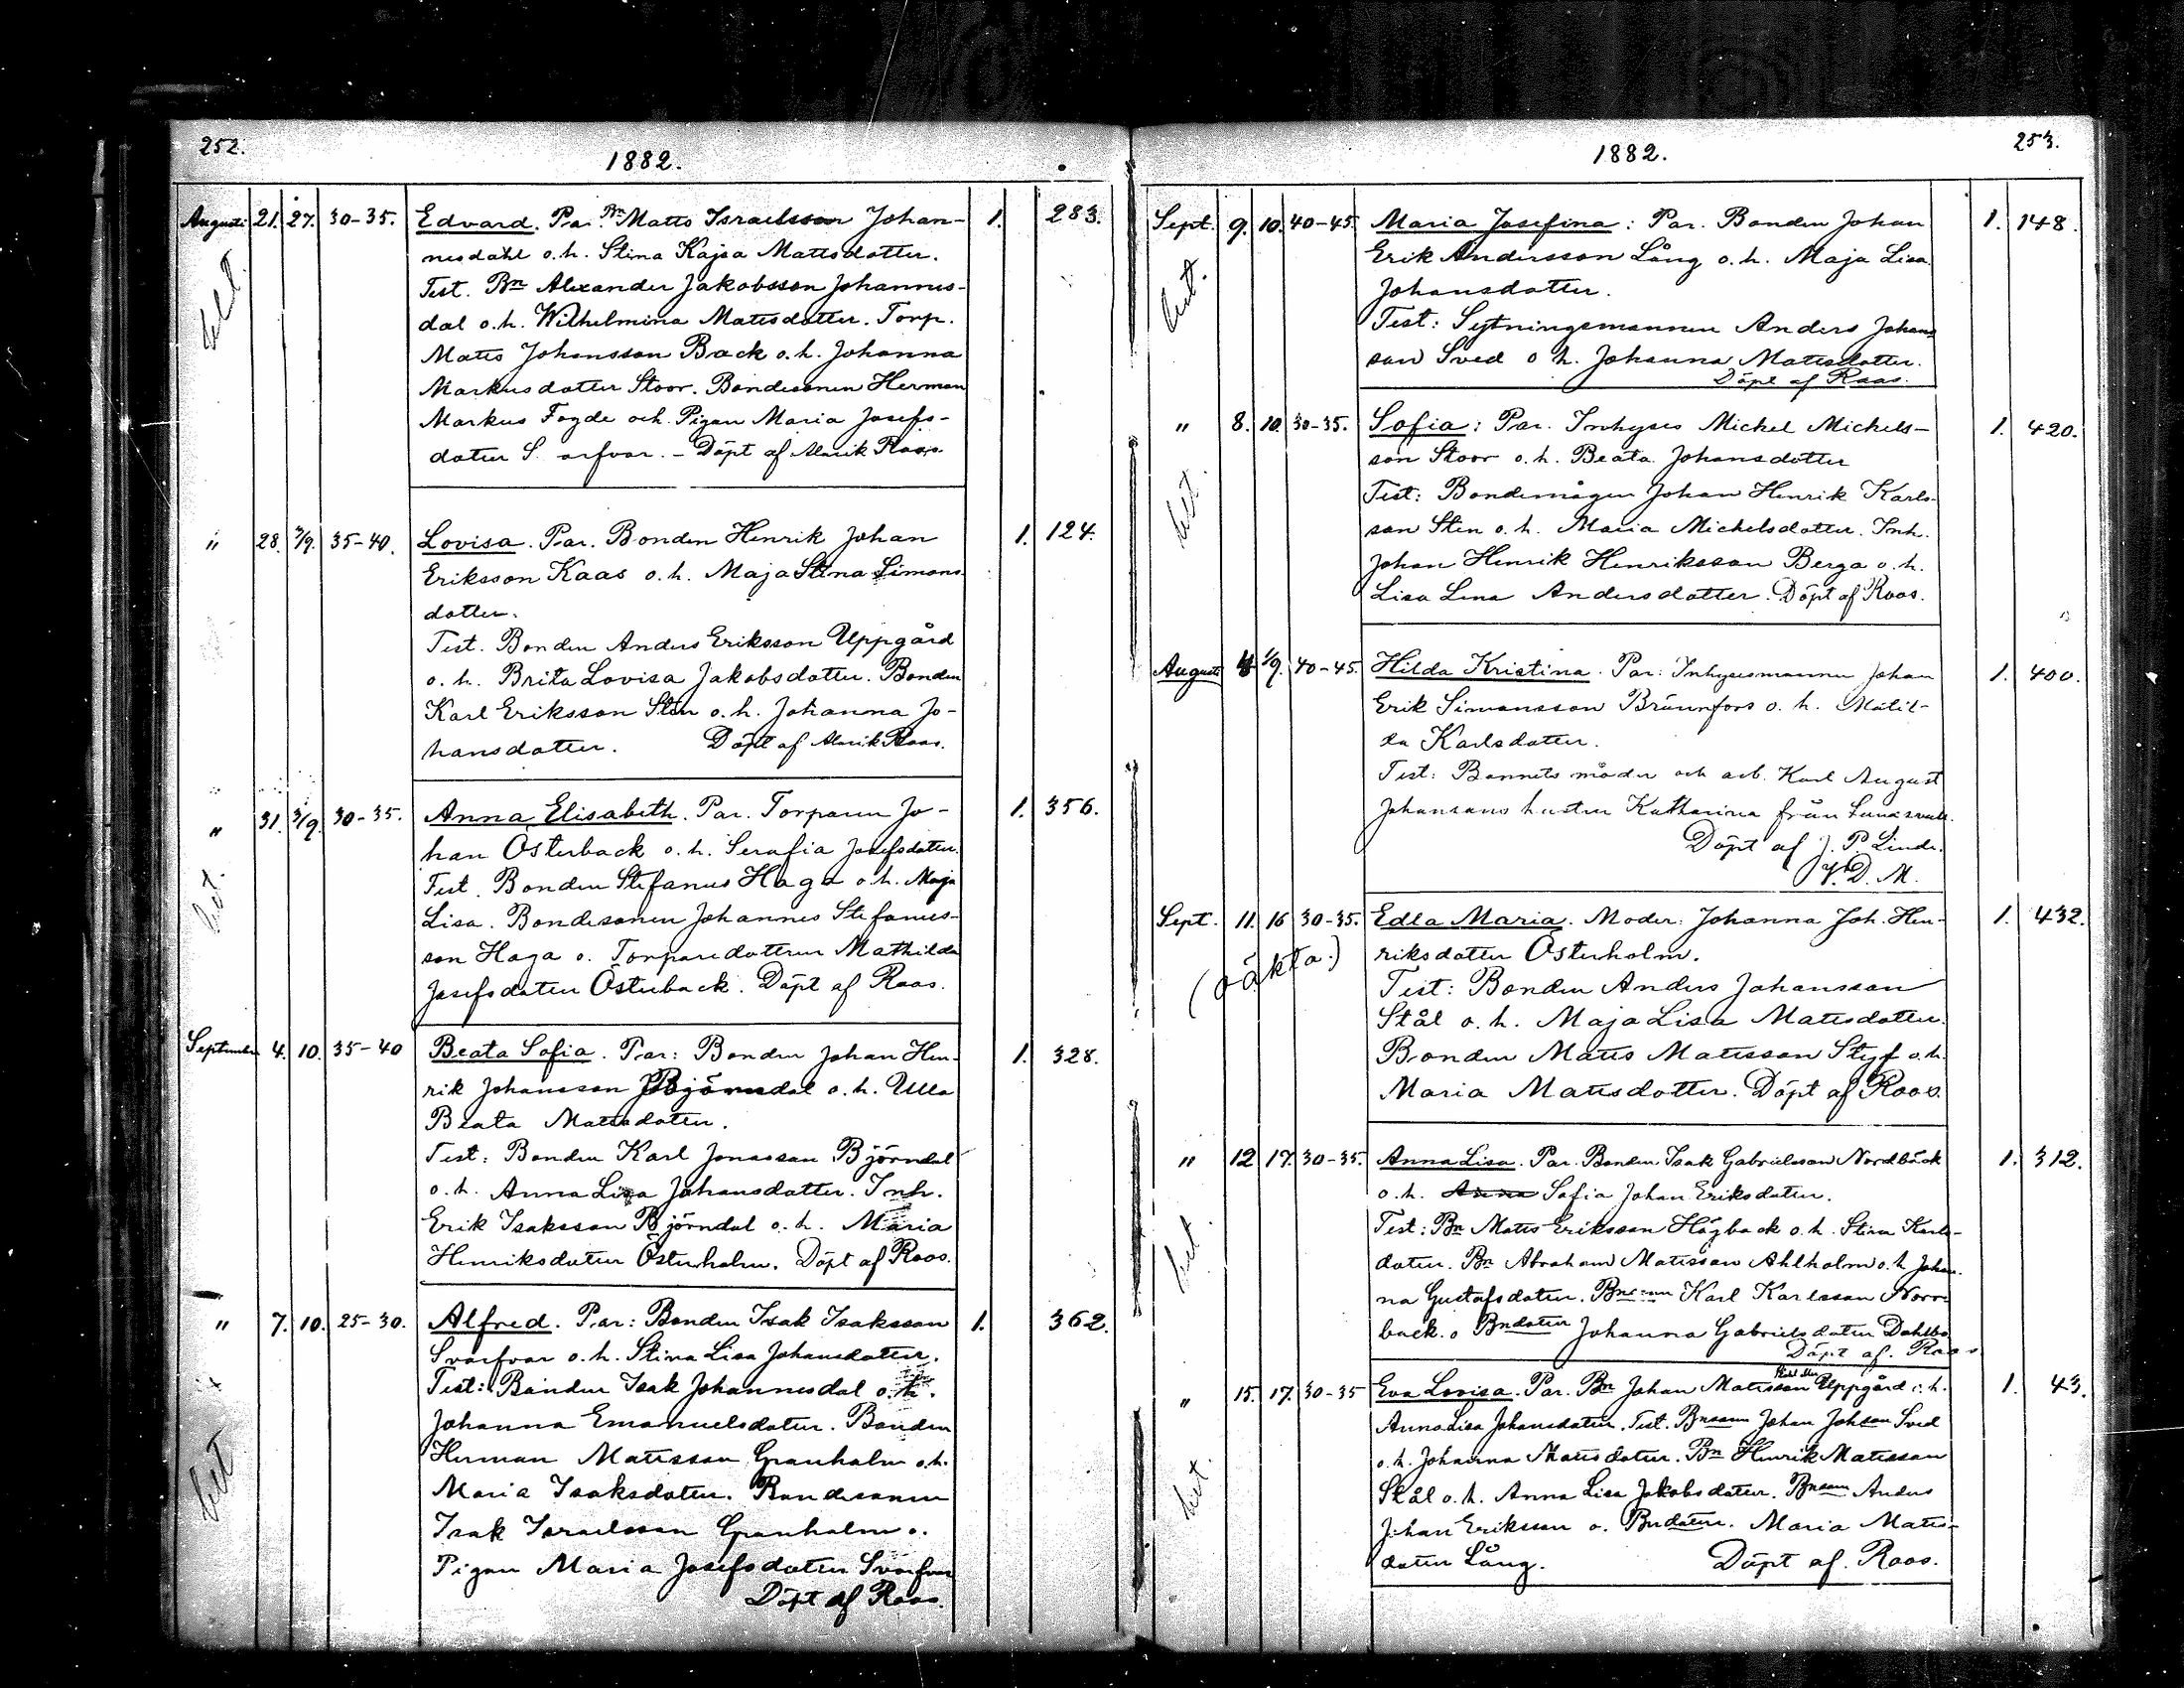 252.
1882.
Augusti 21. 27. 30-35. Edvard. Par. Bn Matts Israelsson Johan- 1. 283.
nesdahl o.h. Stina Kajsa Mattsdotter.
Test. Bn Alexander Jakobsson Johannes-
dal o.h. Wilhelmina Matsdotter. Torp.
Matts Johansson Back o.h. Johanna
Markusdotter Stoor. Bondesonen Herman
Markus Fogde och Pigan Maria Josefs-
dotter S arfvar. - Döpt af Alarik Roos.
" 28. 3/9. 35-40. Lovisa. Par. Bonden Henrik Johan 1. 124.
Eriksson Kaas o.h. Maja Stina Simons
dotter.
Test. Bonden Anders Eriksson Uppgård
o.h. Brita Lovisa Jakobsdotter. Bonden
Karl Eriksson Sten o.h. Johanna Jo-
hansdotter. Döpt af Alarik Roos.
" 31. 3/9. 30-35. Anna Elisabeth. Par. Torparen Jo- 1. 356.
han Österback o.h. Serafia Josefsdotter.
Test. Bonden Stefanus Haga o.h. Maja
Lisa. Bondesonen Johannes Stefanus-
son Haga o. Torparedottren Mathilda
Josefsdotter Österback. Döpt af Roos.
September 4. 10. 35-40 Beata Sofia. Par: Bonden Johan Hen- 1. 328.
rik Johansson Björndal o.h. Ulla
Beata Matsdotter.
Test: Bonden Karl Jonasson Björndal
o.h. Anna Lisa Johansdotter. Inh.
Erik Isaksson Björndal o.h. Maria
Henriksdotter Österholm. Döpt af Roos.
" 7. 10. 25-30. Alfred. Par: Bonden Isak Isaksson 1. 362.
Svarfvar o.h. Stina Lisa Johansdotter.
Test: Bonden Isak Johannesdal o.h.
Johanna Emanuelsdotter. Bonden
Herman Matsson Granholm o.h.
Maria Isaksdotter. Bondesonen
Isak Israelsson Granholm o.
Pigan Maria Josefsdotter Svarfvar
Döpt af Roos.
253.
1882.
Sept. 9. 10. 40-45. Maria Josefina: Par. Bonden Johan 1. 148.
Erik Andersson Lång o.h. Maja Lisa
Johansdotter.
Test: Sytningsmannen Anders Johans
son Sved o h. Johanna Matsdotter.
Döpt af Roos.
" 8. 10. 30-35. Sofia: Par. Inhyses Michel Michels- 1. 420.
son Stoor o.h. Beata Johansdotter
Test: Bondemågen Johan Henrik Karls-
son Sten o.h. Maria Michelsdotter. Inh.
Johan Henrik Henriksson Berga o.h.
Lisa Lena Andersdotter. Döpt af Roos.
Augusti 1/9. 40-45. Hilda Kristina. Par: Inhysesmannen Johan 1. 400.
Erik Simonsson Brännfors o. h. Matil-
da Karlsdotter.
Test: Barnets moder och arb. Karl August
Johanssons hustru Katharina från
Döpt af J. P. Linde.
V. D. M.
Sept. 11. 16 30-35. Edla Maria. Moder: Johanna Joh. Hen- 1. 432.
(oäkta.) riksdotter Österholm.
Test: Bonden Anders Johansson
Stål o.h. Maja Lisa Matsdotter.
Bonden Matts Matsson Styf o.h.
Maria Matsdotter. Döpt af Roos.
" 12 17. 30-35. Anna Lisa. Par. Bonden Isak Gabrielsson Nordbäck 1. 312.
o.h. Anna Sofia Johan Eriksdotter.
Test: Bn Matts Eriksson Högback o.h. Stina Karls-
dotter. Bn Abraham Matsson Ahlholm o.h. Johan-
na Gustafsdotter. Bnsonen Karl Karlsson Norr-
back. o Bndotter Johanna Gabrielsdotter Dahlbo
Döpt af. Roos
" 15. 17. 30-35 Eva Lovisa. Par. Bn Johan Matsson Uppgård o.h. 1. 43.
Anna Lisa Johansdotter. Test. Bnsonen Johan Johsson Sved
o.h. Johanna Matsdotter. Bn Henrik Matsson
Stål o.h. Anna Lisa Jakobsdotter. Bnsonen Anders
Johan Eriksson o. Bndotter. Maria Mats-
dotter Lång. Döpt af. Roos.